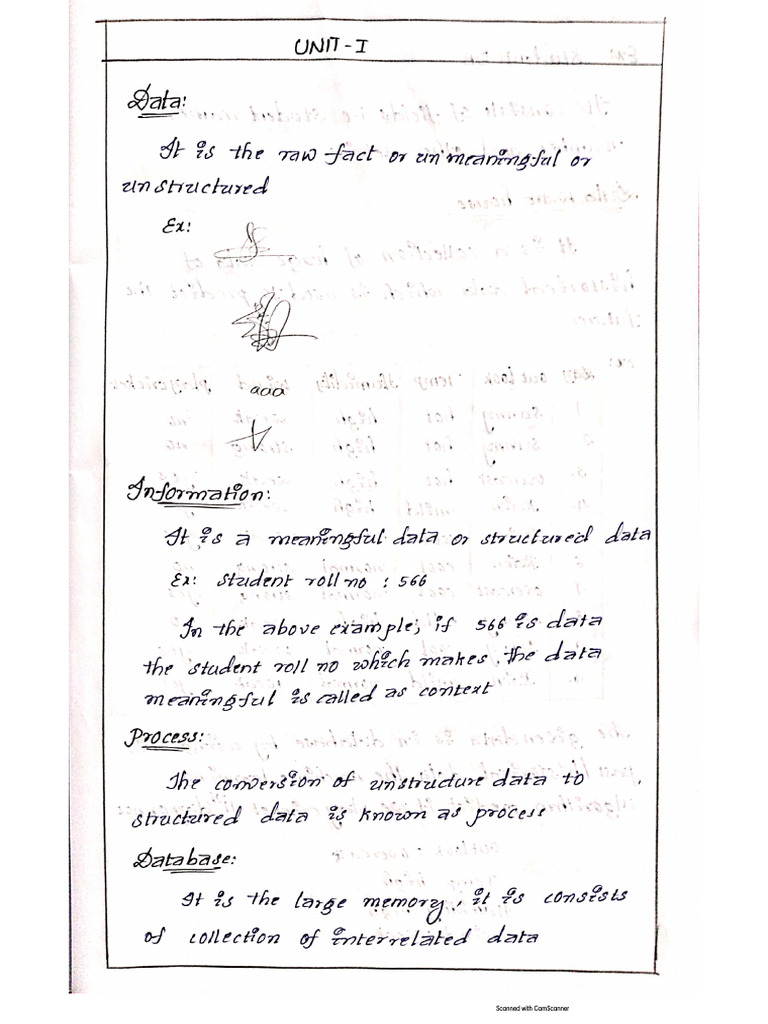 UNIT-I
Data:
It is the raw fact or un'meaningful or
unstructured
Ex:
aaa
Information:
It is a meaningful data or structured data
Ex: student roll no : 566
In the above example, if 566 is data
the student roll no which makes the data
meaningful is called as context
Process:
The conversion of unstructure data to
structured data is known as process
Database:
It is the large memory, it is consists
of collection of interrelated data
Scanned with CamScanner